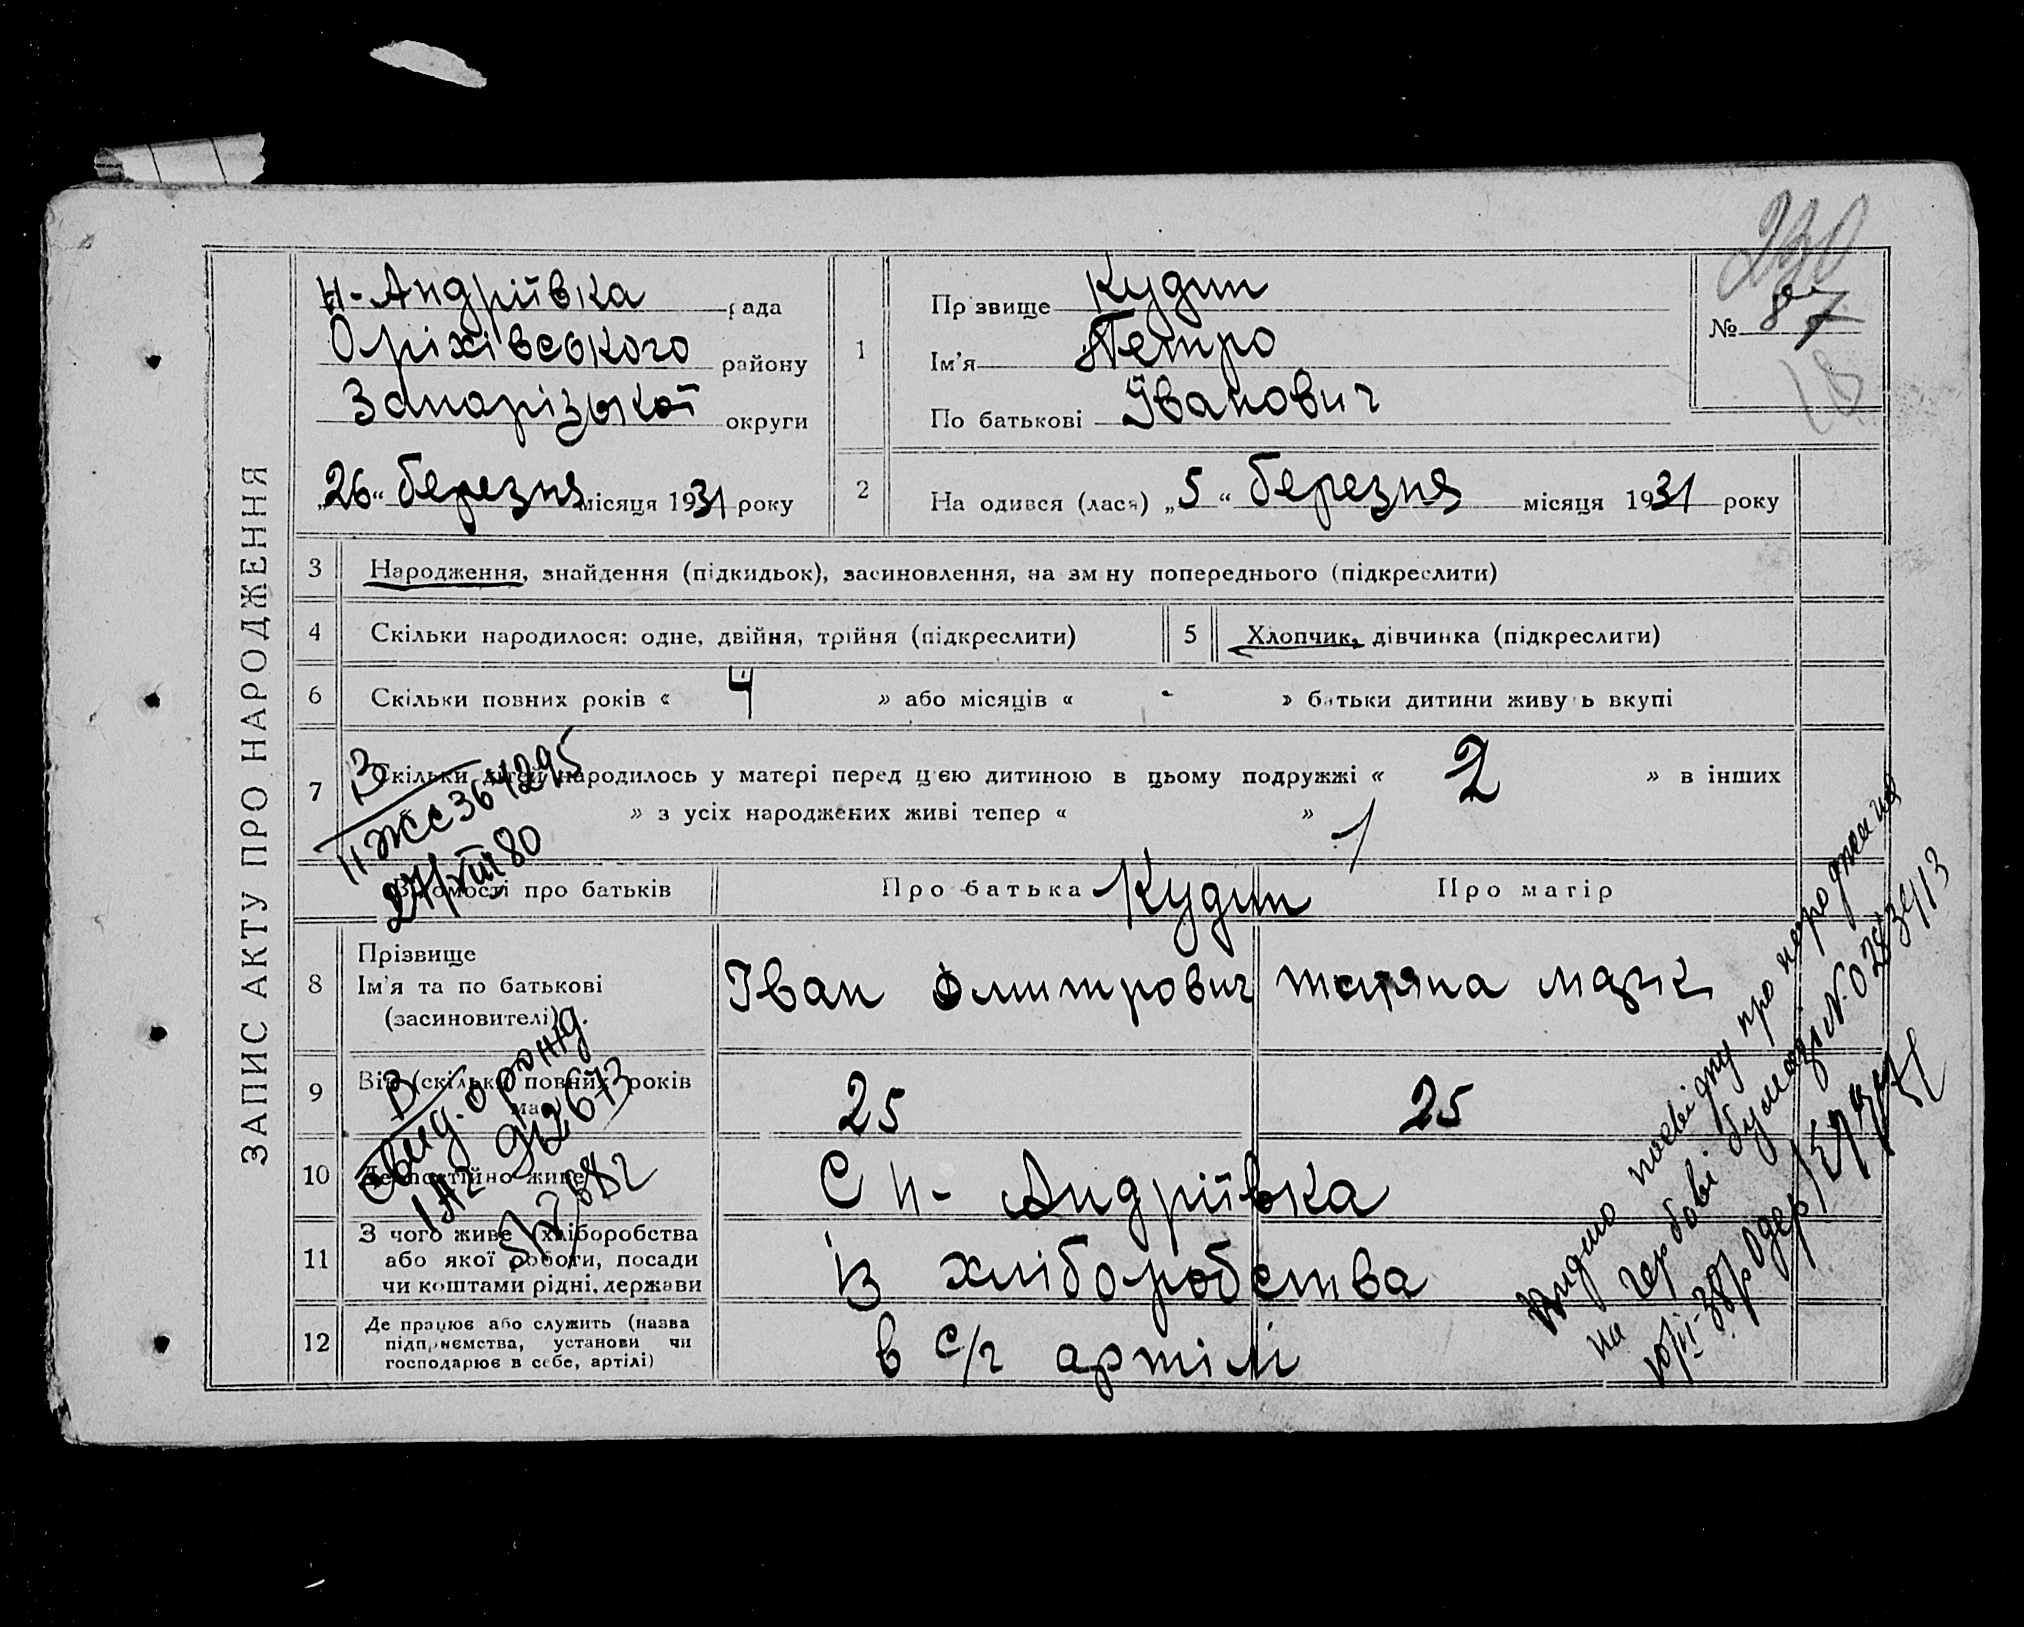 ЗАПИС АКТУ ПРО НАРОДЖЕННЯ
Н-Андріївка рада
Оріхівського району
Запорізької округи
„26“ березня місяця 1931 року
1
Прізвище Кудин
Ім'я Петро
По батькові Іванович
230
№ 87
18
2
Народився (лася) „5“ березня місяця 1931 року
3 Народження, знайдення (підкидьок), засиновлення, на зміну попереднього (підкреслити)
4 Скільки народилося: одне, двійня, трійня (підкреслити)
5 Хлопчик, дівчинка (підкреслити)
6 Скільки повних років « 4 » або місяців « - » батьки дитини живуть вкупі
7 Скільки дітей народилось у матері перед цією дитиною в цьому подружжі « 2 » в інших
» з усіх народжених живі тепер « » 1
В
II ЖС 3641295
27/VIII 80
Відомості про батьків
Про батька
Кудин
Про матір
8 Прізвище
Ім'я та по батькові
(засиновителі)
Іван Дмитрович
Татяна Марк
9 Вік (скільки повних років
має)
25
25
10 Де постійно живе
С Н-Андріївка
11 З чого живе хліборобства
або якої роботи, посади
чи коштами рідні, держави
із хліборобства
12 Де працює або служить (назва
підприємства, установи чи
господарює в себе, артілі)
в с/г артілі
В
Свид. о рожд
Видано посвідку про народження
на гербові бумазі №